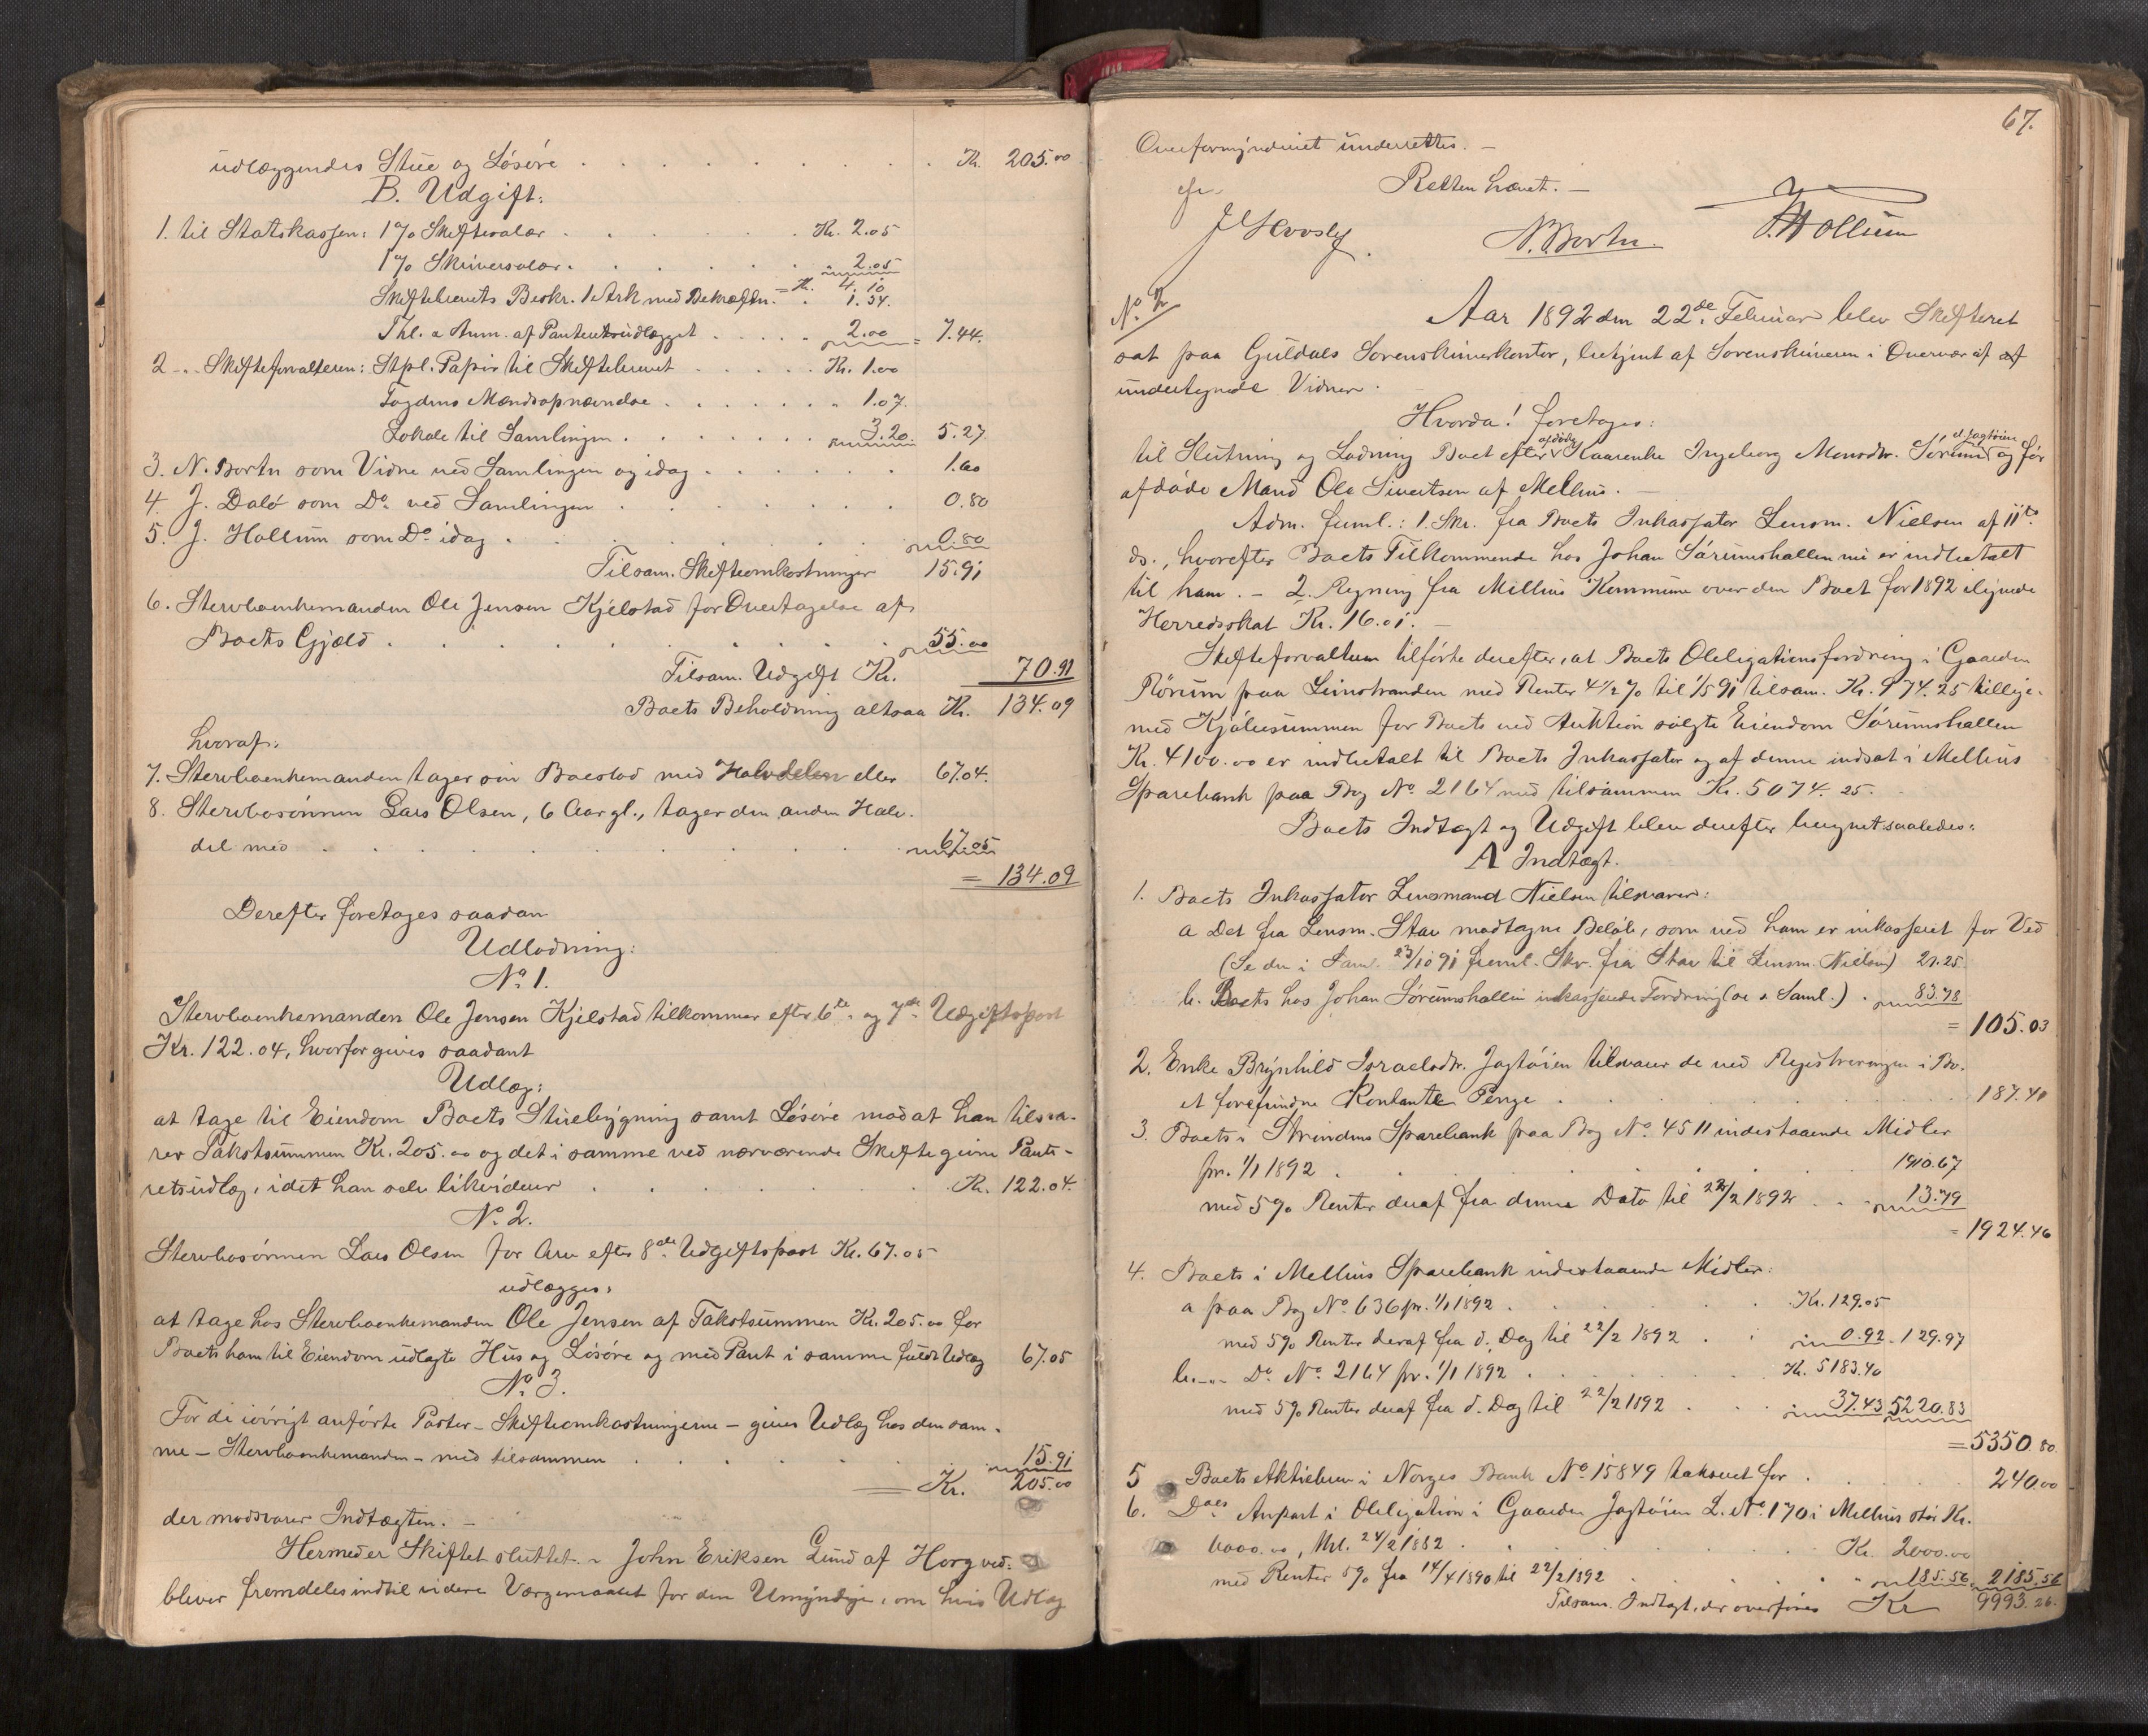 udlæggendes Stue og Løsøre . . . . . . . . Kr. 205.00
B. Udgift:
1. til Statskassen: 1 % Skiftesalær . . . . . . Kr. 2.05
1 % Skriversalær . . . . . . " 2.05
= Kr. 4.10
Skiftebrevets Beskr. 1 Ark med Bekræftn. . 1.34
Thl. a Anm. af Panteretsudlægget . . . . 2.00 = 7.44.
2 -"- Skifteforvalteren: Stpl. Papir til Skiftebrevet . . . . Kr. 1.00
Fogdens Mændsopnævnelse . . . . . . " 1.07.
Lokale til Samlingen . . . . . . . 3.20. 5.27
3. N. Bortn som Vidne ved Samlingen og idag . . . . . . 1.60
4. J. Dalø som Do. ved Samlingen . . . . . . . 0.80
5. J. Hollum som Do. idag . . . . . . . . 0.80
Tilsam. Skifteomkostninger 15.91
6. Stervboenkemanden Ole Jensen Kjelstad for Overtagelse af
Boets Gjæld . . . . . . . . . 55.00
Tilsam. Udgift Kr. 70.91
Boets Beholdning altsaa Kr. 134.09
hvoraf:
7. Stervboenkemanden tager sin Boeslod med Halvdelen eller 67.04.
8. Stervbosønnen Lars Olsen, 6 Aar gl., tager den anden Halv-
del med . . . . . . . . . 67.05
= 134.09
Derefter foretages saadan
Udlodning:
No 1.
Stervboenkemanden Ole Jensen Kjelstad tilkommer efter 6te og 7de Udgiftspost
Kr. 122.04, hvorfor gives saadant
Udlæg:
at tage til Eiendom Boets Stuebygning samt Løsøre mod at han tilsva-
rer Takstsummen Kr. 205.00 og det i samme ved nærværende Skifte givne Pante-
retsudlæg, idet han selv likviderer . . . . . Kr. 122.04.
No 2.
Stervbosønnen Lars Olsen for Arv efter 8de Udgiftspost Kr. 67.05
udlægges:
at tage hos Stervboenkemanden Ole Jensen af Takstsummen Kr. 205.00 for
Boets ham til Eiendom udlagte Hus og Løsøre og med Pant i samme fuldt Udlæg 67.05
No 3.
For de iøvrigt anførte Poster – Skifteomkostningerne – gives Udlæg hos den sam-
me – Stervboenkemanden – med tilsammen . . . . . 15.91
Kr. 205.00
der modsvarer Indtægten. –
Hermed er Skiftet sluttet. – John Eriksen Lund af Horg ved-
bliver fremdeles indtil videre Værgemaalet for den Umyndige, om hvis Udlæg
67.
Overformynderiet underrettes. –
Retten hævet. –
N. Bortn J. Hollum
No. 2
Aar 1892 den 22de Februar blev Skifteret
sat paa Guldals Sorenskriverkontor, betjent af Sorenskriveren i Overvær af af
undertegnede Vidner.
Hvorda! foretoges:
til Slutning og Lodning Boet efter afdøde Kaarenke Ingeborg Monsdtr. Sørum el. Jagtøien og før
afdøde Mand Ole Sivertsen af Melhus. –
Adm. freml.: 1. Skr. fra Boets Inkassator Lensm. Nielsen af 11te
ds., hvorefter Boets Tilkommende hos Johan Sørumshallen nu er indbetalt
til ham. – 2. Regning fra Melhus Kommune over den Boet for 1892 ilignede
Herredsskat Kr. 16.01. –
Skifteforvalteren tilførte derefter, at Boets Obligationsfordring i Gaarden
Rørum paa Leinstranden med Renter 4 1/2 % til 1/5 91 tilsam. Kr. 974.25 tillige-
med Kjøbesummen for Boets ved Auktion solgte Eiendom Sørumshallen
Kr. 4100.00 er indbetalt til Boets Inkassator og af denne indsat i Melhus
Sparebank paa Bog No 2164 med tilsammen Kr. 5074.25.
Boets Indtægt og Udgift blev derefter beregnet saaledes:
A Indtægt.
1. Boets Inkassator Lensmand Nielsen tilsvarer:
a Det fra Lensm. Stav modtagne Beløb, som ved ham er inkasseret for Ved
(Se den i Saml. 23/10 91 freml. Skr. fra Stav til Lensm. Nielsen) 21.25.
b. Boets hos Johan Sørumshallen inkasserede Fordring (se s. Saml.) . 83.78
= 105.03
2. Enke Brynhild Israelsdtr. Jagtøien tilsvarer de ved Registreringen i Bo-
et forefundne Kontante Penge . . . . . . 187.40
3. Boets i Strindens Sparebank paa Bog No. 4511 indestaaende Midler
pr. 1/1 1892 . . . . . . . . 1910.67
med 5 % Renter deraf fra denne Dato til 22/2 1892 . . . 13.79
= 1924.46
4. Boets i Melhus Sparebank indestaaende Midler:
a paa Bog No. 636 pr. 1/1 1892 . . . . . Kr. 129.05
med 5 % Renter deraf fra d. Dag til 22/2 1892 . . 0.92 . 129.97
b. -"- Do. No. 2164 pr. 1/1 1892 . . . . . Kr. 5183.40
med 5 % Renter deraf fra d. Dag til 22/2 1892 . . . 37.43 5220.83
= 5350.80.
5 Boets Aktiebrev i Norges Bank No. 15849 takseret for . . . . 240.00
6. Daes Anpart i Obligation i Gaarden Jagtøien L. No. 170 i Melhus stor Kr.
6000.00, thl. 24/2 1882 . . . . . . . Kr. 2000.00
med Renter 5 % fra 14/4 1890 til 22/2 1892 . . . . . 185.56 2185.56
Tilsam. Indtægt, der overføres Kr 9993.26.